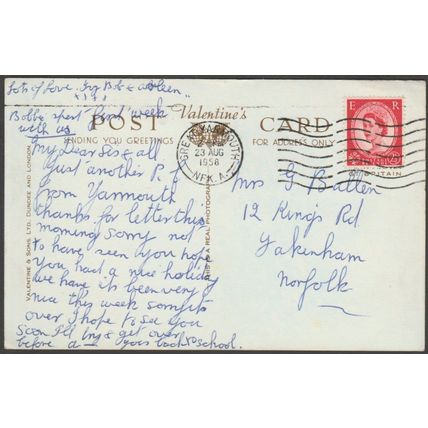 Lots of Love. Ivy Bob &
x x x x
Bobbs spent first week
with us
POST Valentine's CARD
SENDING YOU GREETINGS
FOR ADDRESS ONLY
GREAT YARMOUTH
23 AUG
1958
NFK. A
E R
My Dear Sis & all
Just another P. C
from Yarmouth
thanks for letter this
morning Sorry not
to have seen you hope
you had a nice holiday
we have its been very
nice this week
over I hope to see you
soon I'll try & get over
before a goes back to school.
VALENTINE & SONS LTD. DUNDEE AND LONDON
THIS IS A REAL PHOTOGRAPH
Mrs G Batten
12 Kings Rd
Fakenham
Norfolk